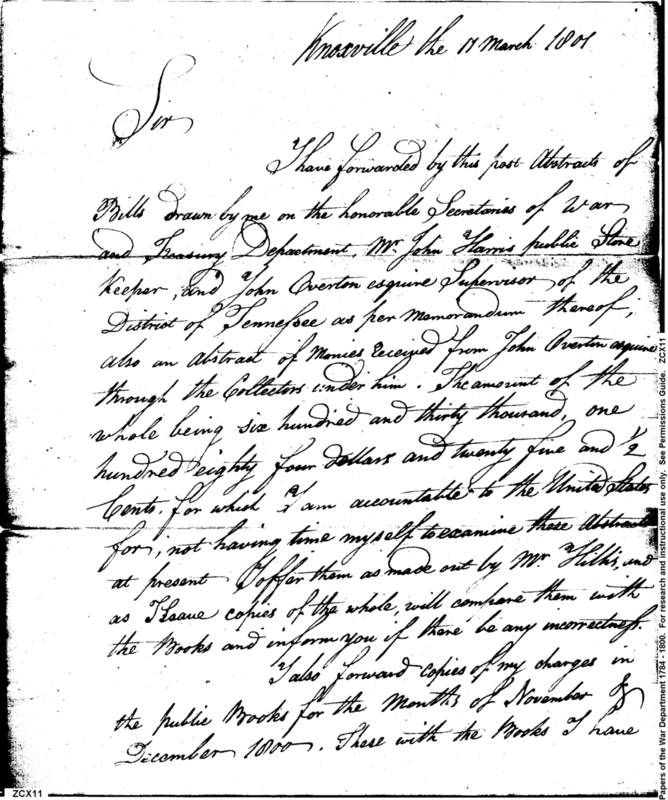 Knoxville the 17 March 1801
Sir
I have forwarded by this post Abstracts of
Bills drawn by me on the honorable Secretaries of War
and Treasury Department, Mr. John Harris public Store
Keeper, and John Overton esquire Supervisor of the
District of Tennessee as per Memorandum thereof;
also an Abstract of Monies received from John Overton esquire
through the Collectors under him. The amount of the
whole being six hundred and thirty thousand, one
hundred eighty four dollars and twenty five and 1/2
Cents. for which I am accountable to the United States
for; not having time myself to examine these Abstracts
at present I offer them as made out by Mr. Hillis, and
as I leave copies of the whole, will compare them with
the Books and inform you if there be any incorrectness.
I also forward copies of my charges in
the public Books for the Months of November &
December 1800. These with the Books I have
ZCX11
Papers of the War Department 1784 - 1800. For research and instructional use only. See Permissions Guide. ZCX11